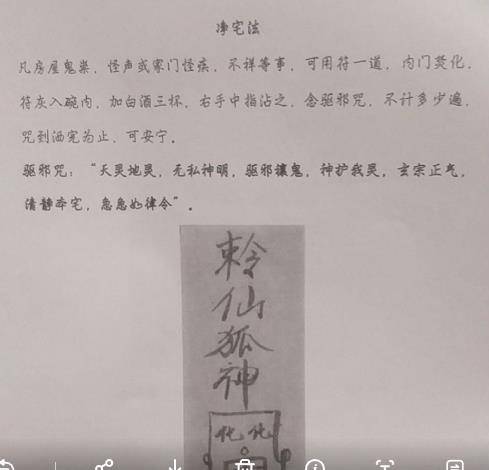 净宅法
凡房屋鬼祟，怪声或家门怪疾，不祥等事，可用符一道，内门焚化，
符灰入碗内，加白酒三杯，右手中指沾之，念驱邪咒，不计多少遍，
咒到洒完为止，可安宁。
驱邪咒：“天灵地灵，无私神明，驱邪镶鬼，神护我灵，玄宗正气，
清静本宅，急急如律令”。
敕令
仙
狐
神
化化